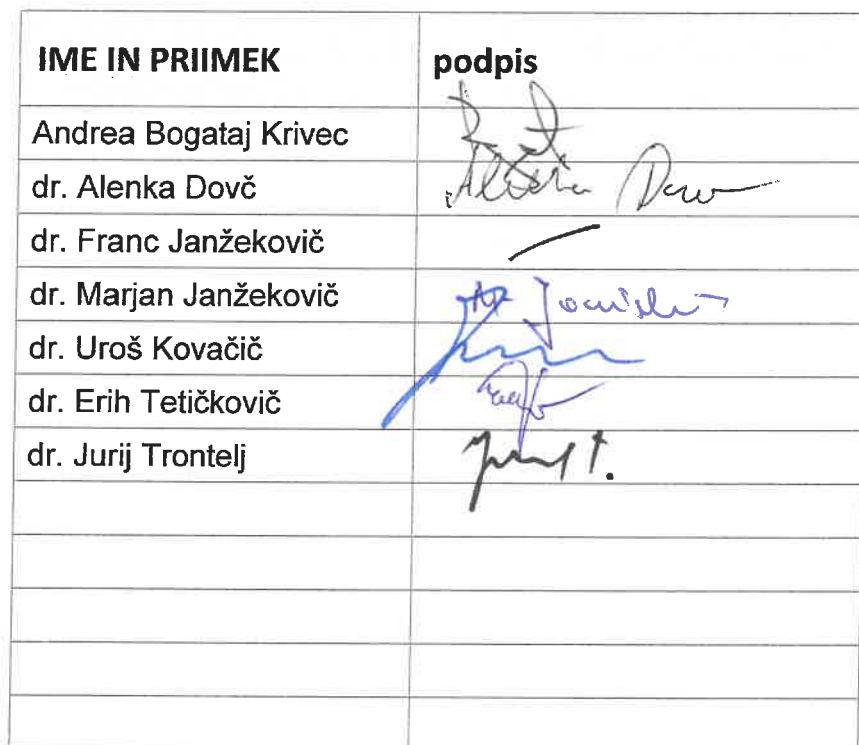 IME IN PRIIMEK podpis
Andrea Bogataj Krivec
dr. Alenka Dovč
dr. Franc Janžekovič
dr. Marjan Janžekovič
dr. Uroš Kovačič
dr. Erih Tetičkovič
dr. Jurij Trontelj